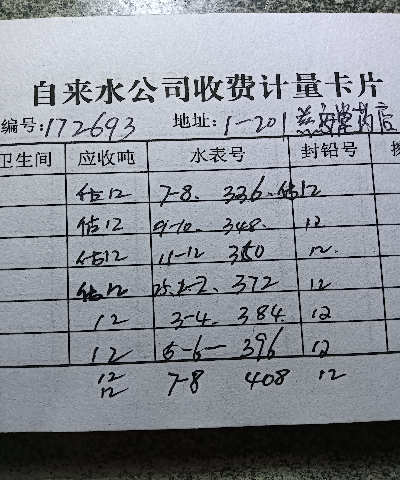 自来水公司收费计量卡片
编号:172693 地址:1-201 药店
卫生间 应收吨 水表号 封铅号
估12 7-8. 336. 估12
估12 9-10. 348. 12
估12 11-12 360 12.
估12 25.1-2. 372 12
12 3-4. 384. 12
12 5-6- 396 12
12 7-8 408 12
12